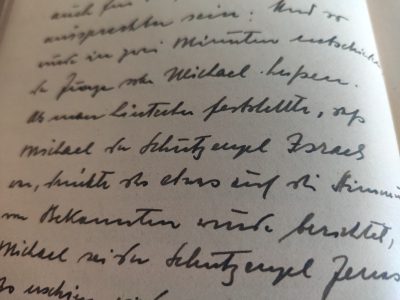 auch für
aussprechbar sein. Und so
wurde in zwei Minuten entschieden
der Junge solle Michael heissen.
Als man hinterher feststellte, dass
Michael der Schutzengel Israels
sei, drückte das etwas auf die Stimmung
von Bekannten wurde berichtet,
Michael sei der Schutzengel
So